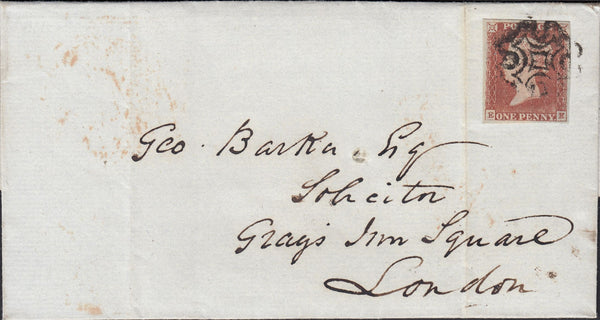 PO
E ONE PENNY
Geo. Barker Esq
Solicitor
Grays Inn Square
London